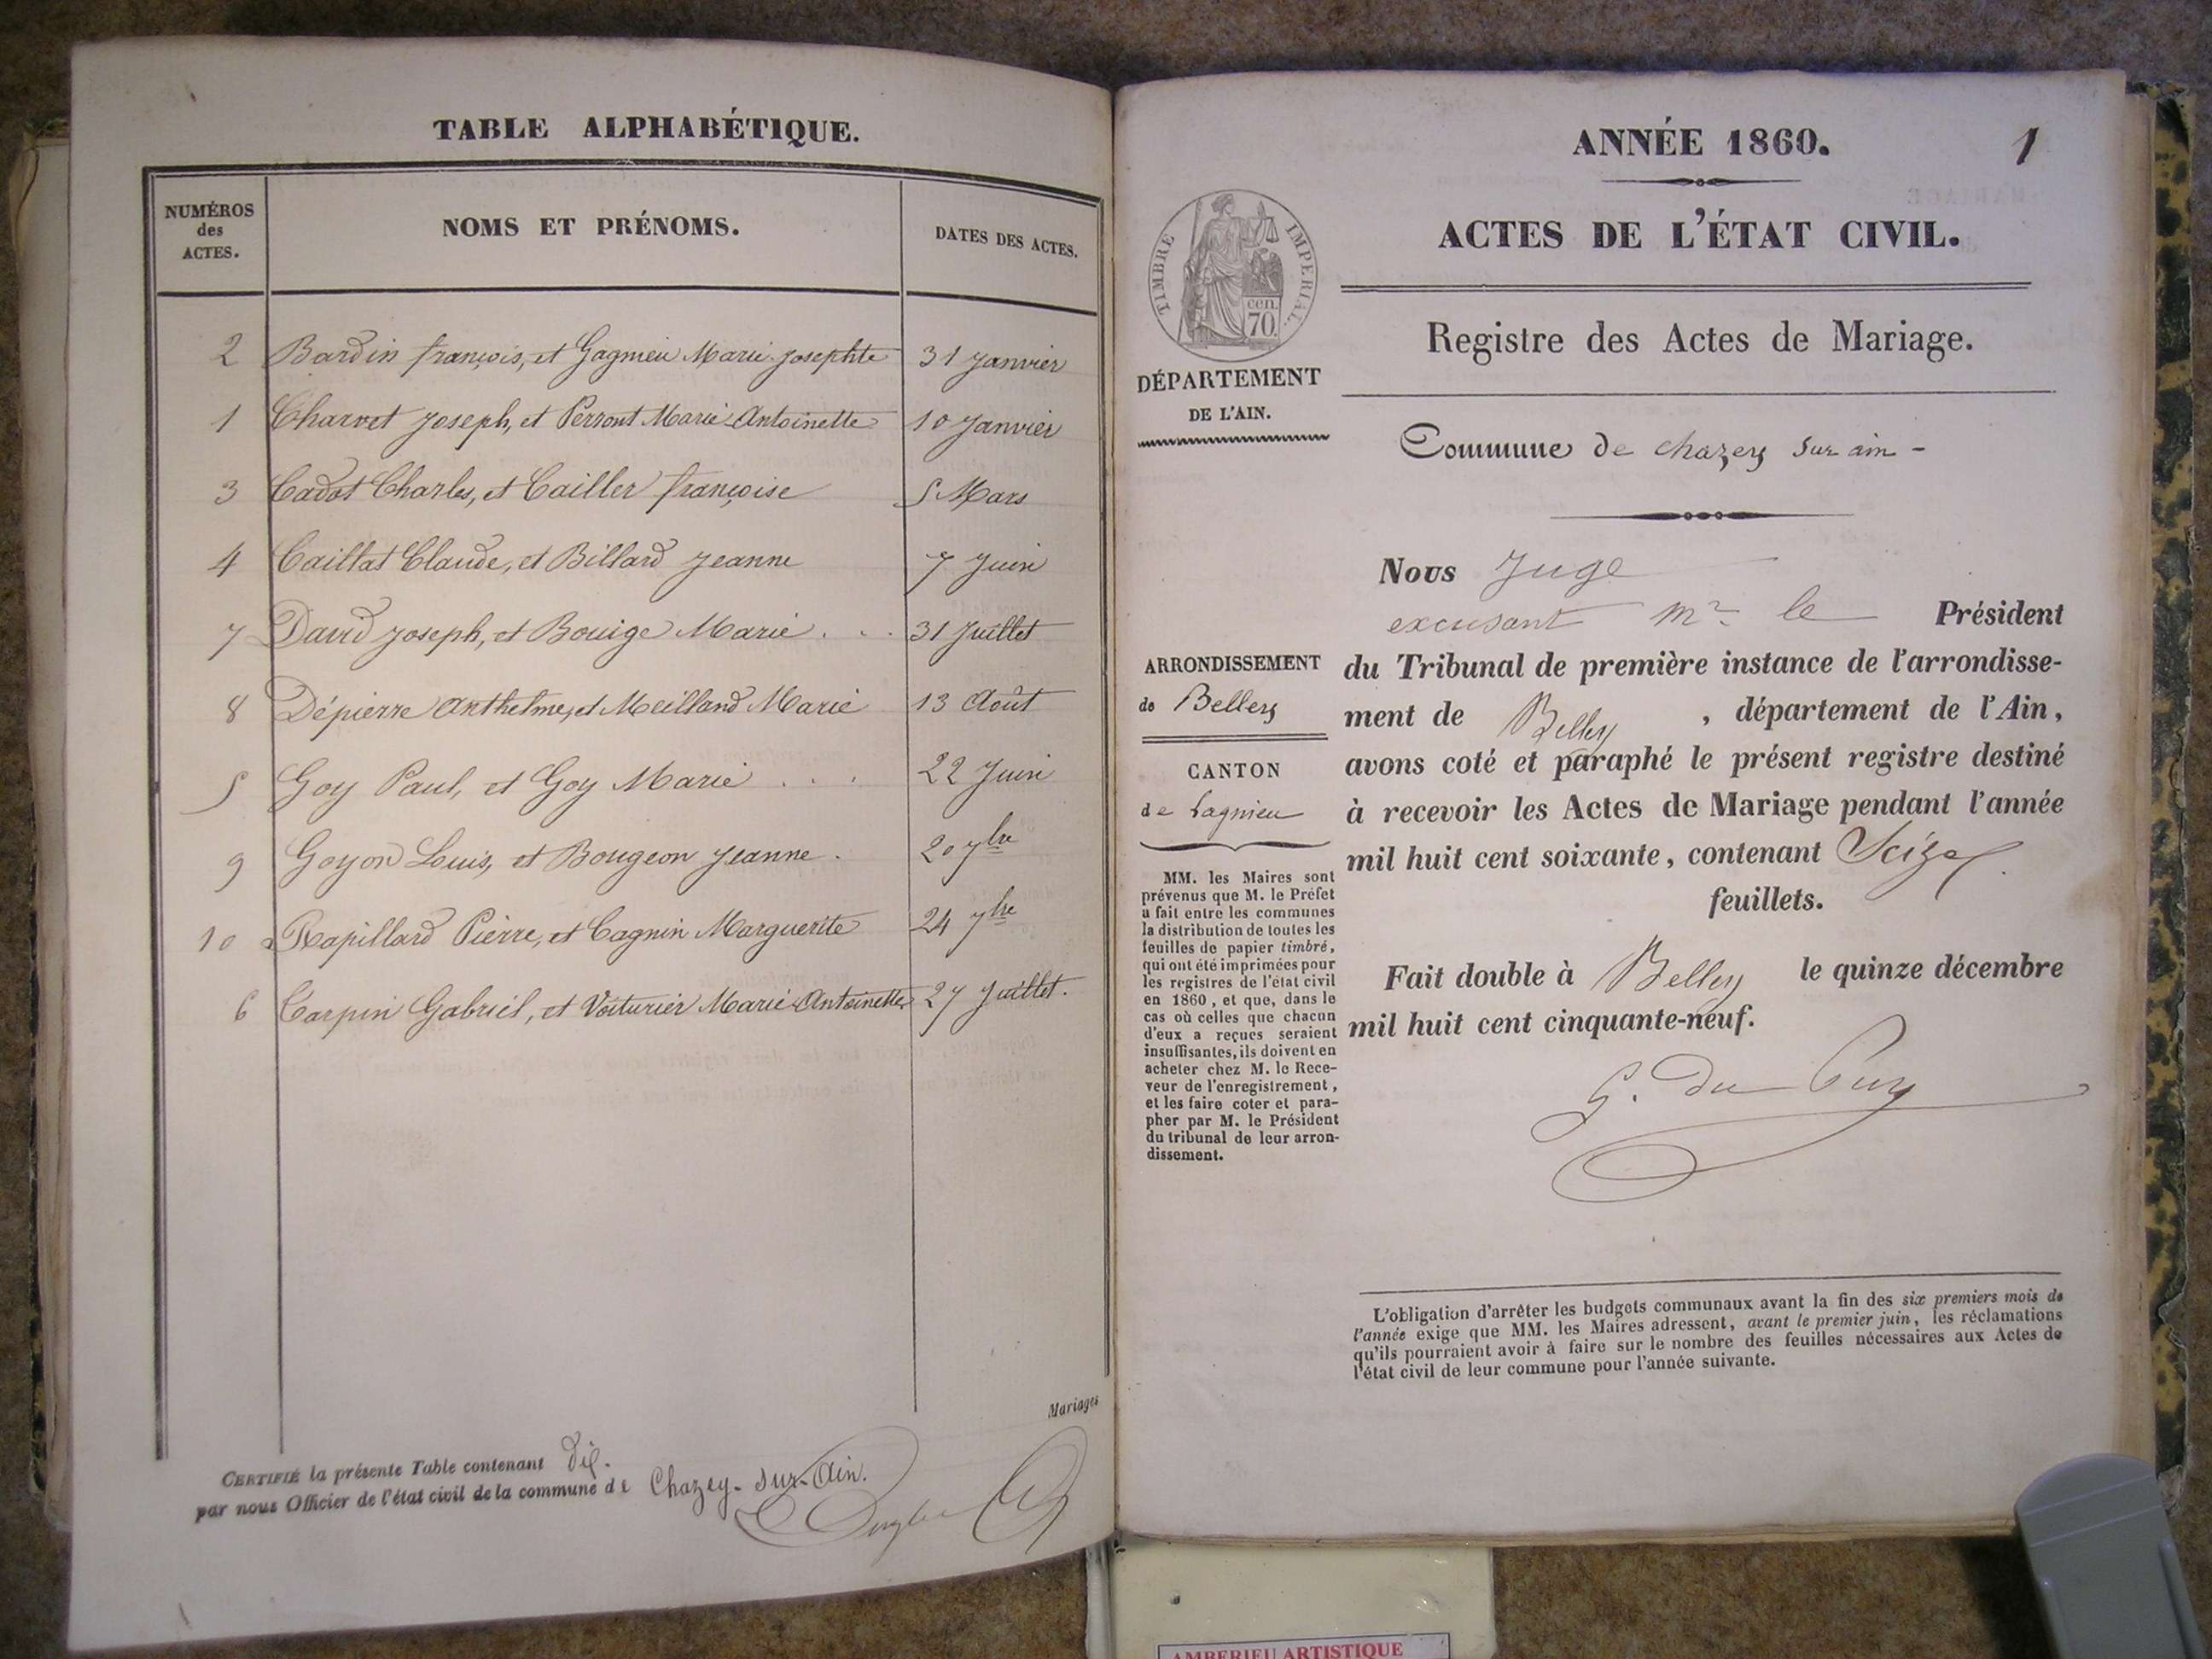 TABLE ALPHABÉTIQUE.
NUMÉROS des ACTES.
NOMS ET PRÉNOMS.
DATES DES ACTES.
2 Bardin françois, et Gagnieu Marie Josephte 31 Janvier
1 Charvet Joseph, et Perront Marie Antoinette 10 Janvier
3 Cadot Charles, et Cailler françoise 5 Mars
4 Caillat Claude, et Billard Jeanne 7 Juin
7 David Joseph, et Bouige Marie . . . 31 Juillet
8 Dépierre Anthelme, et Meilland Marie 13 Août
5 Goy Paul, et Goy Marie . . . 22 Juin
9 Goyon Louis, et Bougeon Jeanne . 20 7bre
10 Rapillard Pierre, et Cagnin Marguerite 24 7bre
6 Carpin Gabriel, et Voiturier Marie Antoinette 27 Juillet.
Mariages
CERTIFIÉ la présente Table contenant dix.
par nous Officier de l'état civil de la commune de Chazey-sur-Ain.
ANNÉE 1860.
1
ACTES DE L'ÉTAT CIVIL.
TIMBRE IMPERIAL.
cen.
70.
Registre des Actes de Mariage.
DÉPARTEMENT
DE L'AIN.
Commune de chazey sur ain -
Nous Juge
excusant mr le Président
du Tribunal de première instance de l'arrondisse-
ment de Belley , département de l'Ain,
avons coté et paraphé le présent registre destiné
à recevoir les Actes de Mariage pendant l'année
mil huit cent soixante, contenant Seize
feuillets.
Fait double à Belley le quinze décembre
mil huit cent cinquante-neuf.
G. Du Puy
ARRONDISSEMENT
de Belley
CANTON
de Lagnieu
MM. les Maires sont
prévenus que M. le Préfet
a fait entre les communes
la distribution de toutes les
feuilles de papier timbré,
qui ont été imprimées pour
les registres de l'état civil
en 1860, et que, dans le
cas où celles que chacun
d'eux a reçues seraient
insuffisantes, ils doivent en
acheter chez M. le Rece-
veur de l'enregistrement,
et les faire coter et para-
pher par M. le Président
du tribunal de leur arron-
dissement.
L'obligation d'arrêter les budgets communaux avant la fin des six premiers mois de
l'année exige que MM. les Maires adressent, avant le premier juin, les réclamations
qu'ils pourraient avoir à faire sur le nombre des feuilles nécessaires aux Actes de
l'état civil de leur commune pour l'année suivante.
AMBERIEU ARTISTIQUE